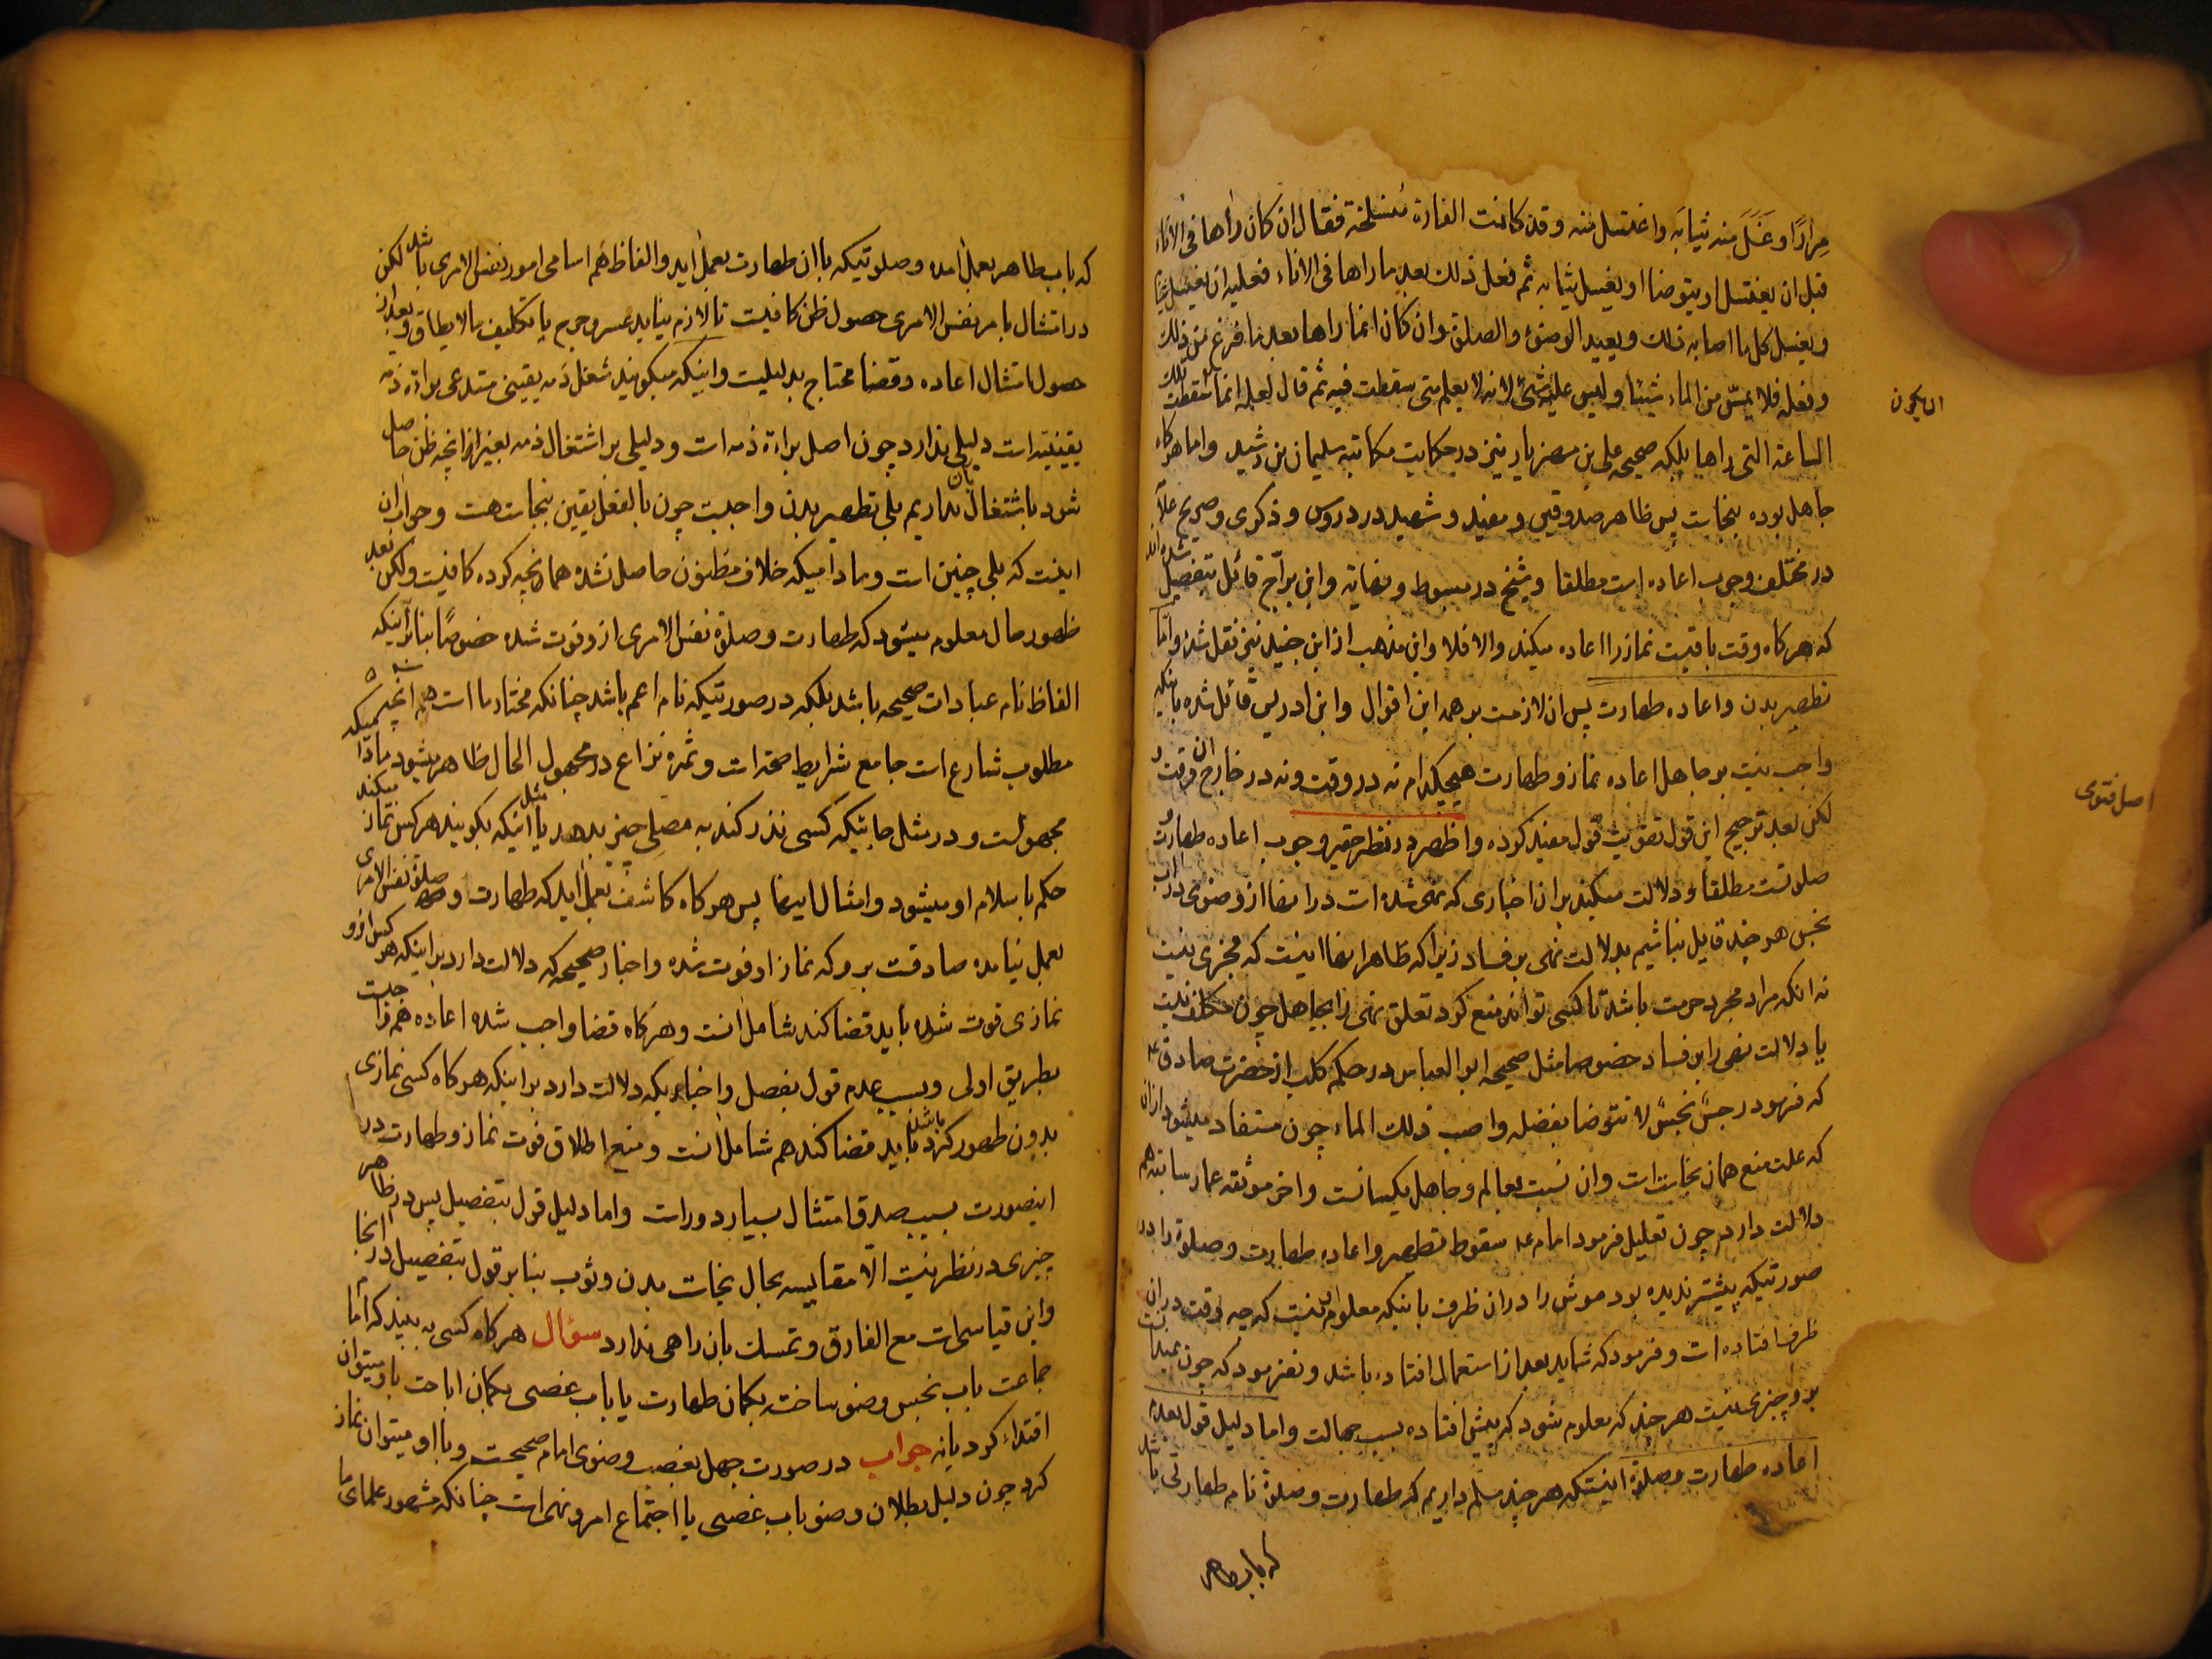 مِرارًا و غَسَلَ منه ثیابَه واغتسل منه وقد کانت الفارة منسلخة فقال ان کان رأها فی الاناء
قبل ان یغتسل او یتوضا او یغسل ثیابه ثم فعل ذلک بعد ما راها فی الاناء فعلیه ان یغسل ثیابه
و یغسل کل ما اصابه ذلک و یعید الوضوء والصلوة و ان کان انما راها بعد ما فرغ من ذلک
و فعله فلا یمسّ من الماء شیئا و لیس علیه شیٌ لانه لا یعلم متی سقطت فیه ثم قال لعله ان یکون انما سقطت تلک
الساعة التی راها بلکه صحیحه علی بن مهزیار نیز در حکایت مکاتبه سلیمان بن رشید و اما هرکاه
جاهل بوده بنجاست پس ظاهر صدوقین و مفید و شهید در دروس و ذکری و صریح علامه
در مختلف وجوب اعاده است مطلقا و شیخ در مبسوط و نهایه و ابن برّاج قائل بتفصیل شده اند
که هرکاه وقت باقیست نماز را اعاده میکند والا فلا و این مذهب از ابن جنید نیز نقل شده و امّا
تطهیر بدن و اعاده طهارت پس ان لازمست بر همه این اقوال و ابن ادریس قائل شده باینکه
واجب نیست بر جاهل اعاده نماز و طهارت هیچکدام نه در وقت و نه در خارج ان وقت و
لکن بعد ترجیح این قول تقویت قول مفید کرده و اظهر در نظر حقیر وجوب اعاده طهارت و
صلوتست مطلقا و دلالت میکند بران اخباری که نهی شده است در انها از وضوی در اب
نجس هر چند قایل نباشیم بدلالت نهی بر فساد زیرا که ظاهر انها اینست که مجزی نیست
نه انکه مراد مجرد حرمت باشد تا کسی تواند منع کرد تعلق نهی را بجاهل چون مکلف نیست
یا دلالت نهی را بر فساد خصوصا مثل صحیحه ابو العباس در حکم کلب از حضرت صادق ع
که فرمود رجسٌ نجسٌ لا تتوضا بفضله واصبب ذلک الماء چون مستفاد میشود ازان
که علت منع همان نجاست است و ان نسبت بعالم و جاهل یکسانست و اخر موثقه عمار سابقه هم
دلالت دارد چون تعلیل فرمود امام ع سقوط تطهیر و اعاده طهارت و صلوة را در
صورتیکه پیشتر ندیده بود موش را دران ظرف باینکه معلوم او نیست که چه وقت دران
ظرف افتاده است و فرمود که شاید بعد از استعمال افتاده باشد و نفرمود که چون نمیدانست
بر او چیزی نیست هر چند که معلوم شود که پیش افتاده بسبب جهالت و اما دلیل قول بعدم
اعاده طهارت و صلوة اینستکه هر چند مسلّم داریم که طهارت و صلوة نام طهارتی باشد
که باب طاهر
ان یکون
اصل فتوی
که باب طاهر بعمل آمده و صلوتیکه با ان طهارت بعمل آید و الفاظ هم اسامی امور نفس الامری باشد لکن
در امتثال بامر نفس الامری حصول ظن کافیست تا لازم نیاید عسر و حرج یا تکلیف ما لا یطاق و بعد از
حصول امتثال اعاده و قضا محتاج بدلیلیست و اینکه میکویند شغل ذمه یقینی مستدعی براءة ذمه
یقینیّه است دلیلی ندارد چون اصل براءة ذمه است و دلیلی بر اشتغال ذمه بغیر از انچه ظن حاصل
شود باشتغال بان نداریم بلی تطهیر بدن واجبست چون بالفعل یقین بنجاست هست و جواب ان
اینست که بلی چنین است و مادامیکه خلاف مظنون حاصل نشده همان نچه کرده کافیست و لکن بعد
ظهور حال معلوم میشود که طهارت و صلوة نفس الامری از و فوت شده خصوصًا بنابر اینکه
الفاظ نام عبادات صحیحه باشد بلکه در صورتیکه نام اعم باشد چنانکه مختار ما است هم انچه
مطلوب شارع است جامع شرایط صحة است و ثمره نزاع در مجهول الحال ظاهر میشود مادامیکه
مجهولست و در مثل جائیکه کسی نذر کند به مصلی چیزی بدهد یا مثل اینکه بکویند هرکس نماز میکند
حکم باسلام او میشود و امثال اینها پس هرکاه کاشف بعمل آید که طهارت و صلوة نفس الامری
بعمل نیامده صادقست برو که نماز او فوت شده و اخبار صحیحه که دلالت دارد بر اینکه هرکس ازو
نمازی فوت شده باید قضا کند شامل انست و هرکاه قضا واجب شده اعاده هم واجبست
بطریق اولی و بسبب عدم قول بفصل و اخباریکه دلالت دارد بر اینکه هرکاه کسی نمازی
بدون طهور کرده باشد باید قضا کند هم شامل انست و منع اطلاق فوت نماز و طهارت در
اینصورت بسبب صدق امتثال بسیار دور است و اما دلیل قول بتفصیل پس در ظاهر
چیزی در نظر نیست الّا مقایسه بحال نجاست بدن و ثوب بنابر قول بتفصیل در انجا
و این قیاسی است مع الفارق و تمسک بان راهی ندارد سؤال هرکاه کسی به بیند که امام
جماعت باب نجس وضو ساخت بکمان طهارت یا باب غصبی بکمان اباحت باو میتوان
اقتداء کرد یا نه جواب در صورت جهل بغصب وضوی امام صحیحست و با او میتوان نماز
کرد چون دلیل بطلان وضو باب غصبی یا اجتماع امر و نهی است چنانکه مشهور علمای ما